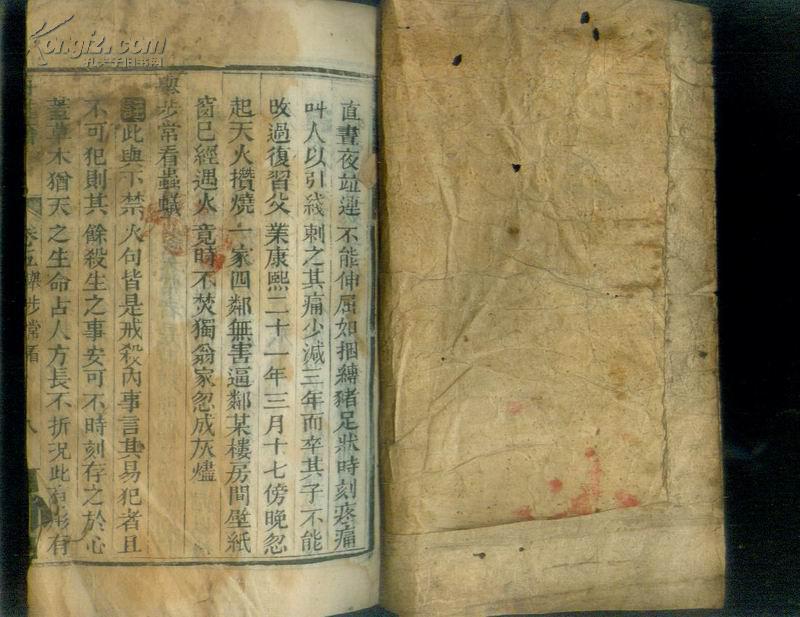 直晝夜竝連不能伸屈如捆縛豬足狀時刻疼痛
叫人以引綫刺之其痛少減三年而卒其子不能
改過復習父業康熙二十一年三月十七傍晚忽
起天火攢燒一家四鄰無害逼鄰某樓房間壁紙
窗已經遇火竟時不焚獨翁家忽成灰燼
舉步常看蟲蟻
註此與不禁火句皆是戒殺內事言其易犯者且
不可犯則其餘殺生之事安可不時刻存之於心
蓋草木猶天之生命占人方長不折況此有形有
卷五舉步常看 八
Kongfz.com
孔夫子旧书网